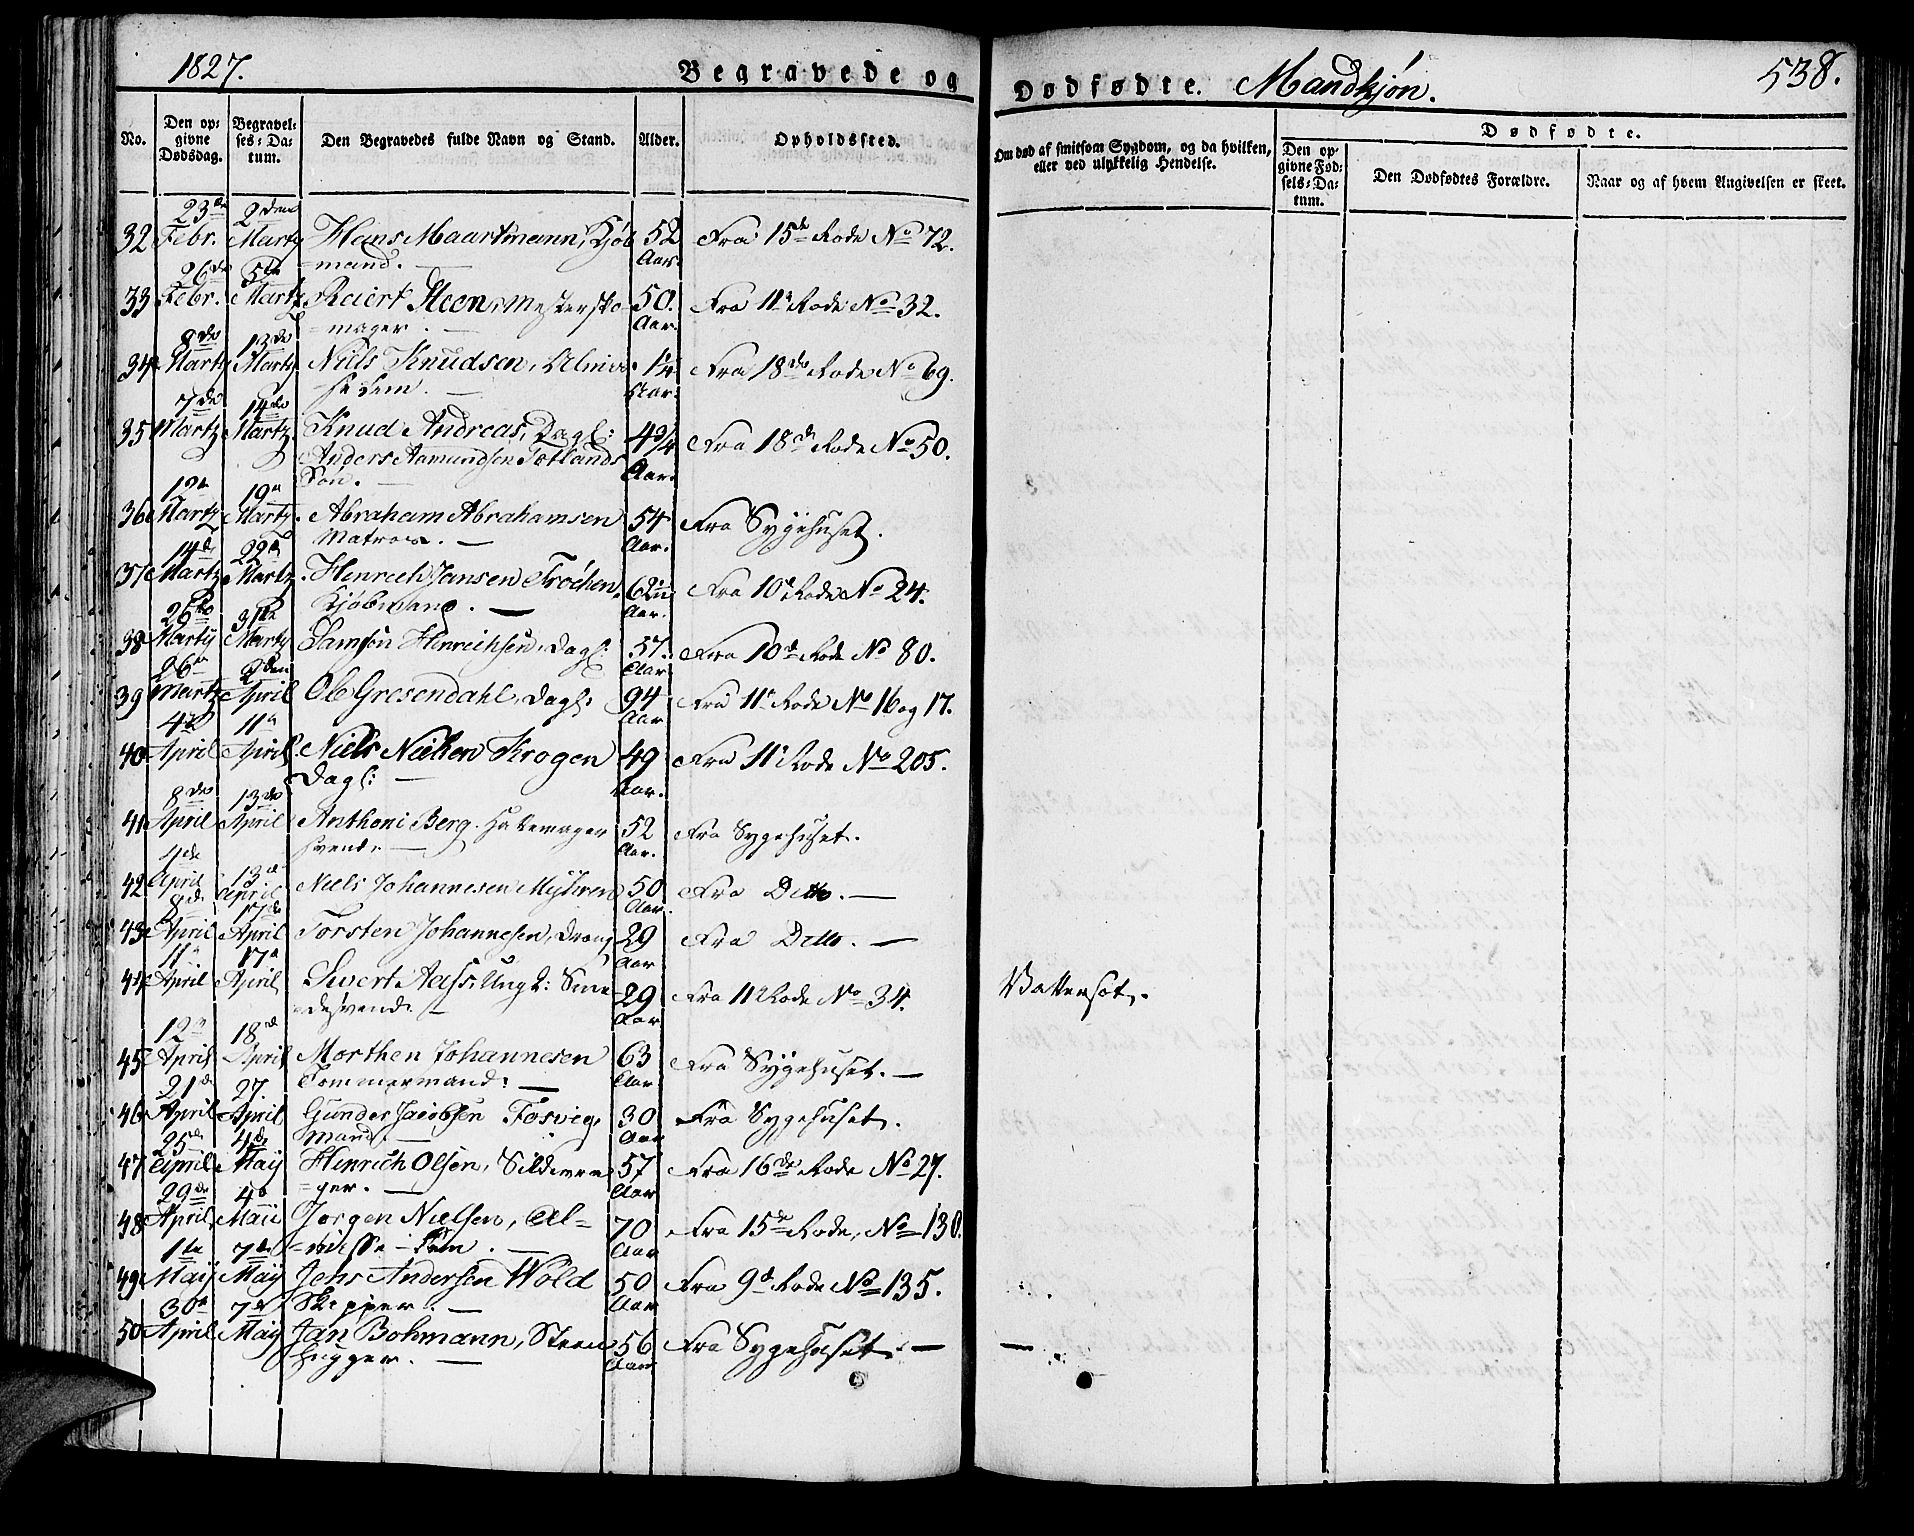 1827.
Begravede og
Dødfødte. Mandkjøn.
538.
No.
Den opgivne Dødsdag.
Begravelses-Datum.
Den Begravedes fulde Navn og Stand.
Alder.
Opholdssted.
Om død af smitsom Sygdom, og da hvilken, eller ved ulykkelig Hendelse.
Dødfødte.
Den opgivne Fødsels-Datum.
Den Dødfødtes Forældre.
Naar og af hvem Angivelsen er skeet.
32 23de Febr. 2den Martz Hans Maartmann, Kjøb=
=mand. 52 Aar. Fra 15de Rode No 72.
33 26de Febr. 5te Martz Reiert Steen, Mestersko=
=mager. 50. Aar. Fra 11te Rode No 32.
34 8de Martz 13de Martz Niels Knudsen, Almis=
se Lem. Aar. Fra 18de Rode No 69.
35 7de Martz 14de Martz Knud Andreas, Dagl:
Anders Aamundsen Totlands
Søn. 4 3/4 Aar. Fra 18de Rode No 50.
36 12te Martz 19de Martz. Abraham Abrahamsen
Matros. 54 Aar. Fra Sygehuset.
37 14de Martz 22de Martz. Henrich Jansen Frøchen,
Kjøbmand. 62 Aar. Fra 10de Rode No 24.
38 26de Martz 31te Martz Samson Henrichsen, Dagl: 57. Aar Fra 10de Rode No 80.
39 26de Martz 2den April Ole Gresendahl, Dagl: 94 Aar Fra 11te Rode No 16 og 17.
40 4de April 11te April Niels Nielsen Krogen
Dagl: 49 Aar. Fra 11te Rode No 205.
41 8de April 13de April Anthoni Berg. Hattemager
svend. 52 Aar. Fra Sygehuset.
42 4de April 13de April Niels Johannesen 50 Aar. Fra Ditto.
43 8de April 17de April Torsten Johannesen, Dreng 29 Aar Fra Ditto.
44 11te April 17de April Sivert Aass, Ung K: Sme=
=desvend. 29 Aar Fra 11te Rode No 34. Vattersot.
45 12te April 18de April Morthen Johannesen
Tømmermand. 63 Aar. Fra Sygehuset.
46 21de April 27. April Gunder Jacobsen Fosvig,
Mand. 30 Aar Fra Sygehuset.
47 25de April 4de Maij Henrich Olsen, Sildevra=
=ger. 57 Aar Fra 16de Rode No 27.
48 29de April 4de Maii Jørgen Nielsen, Al=
=misse-Lem. 70 Aar Fra 15de Rode, No 130.
49 1te Maij 7de Maij Jens Andersen Wold
Skipper. 50 Aar Fra 9de Rode No 135.
50 30te April 7de Maij Jan Bohmann, Steen
hugger. 56 Aar Fra Sygehuset.